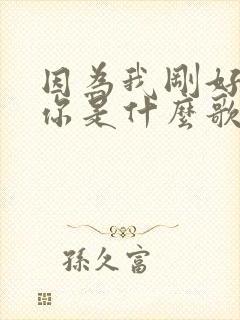 因為我剛好
你是什麼歌
孫久富